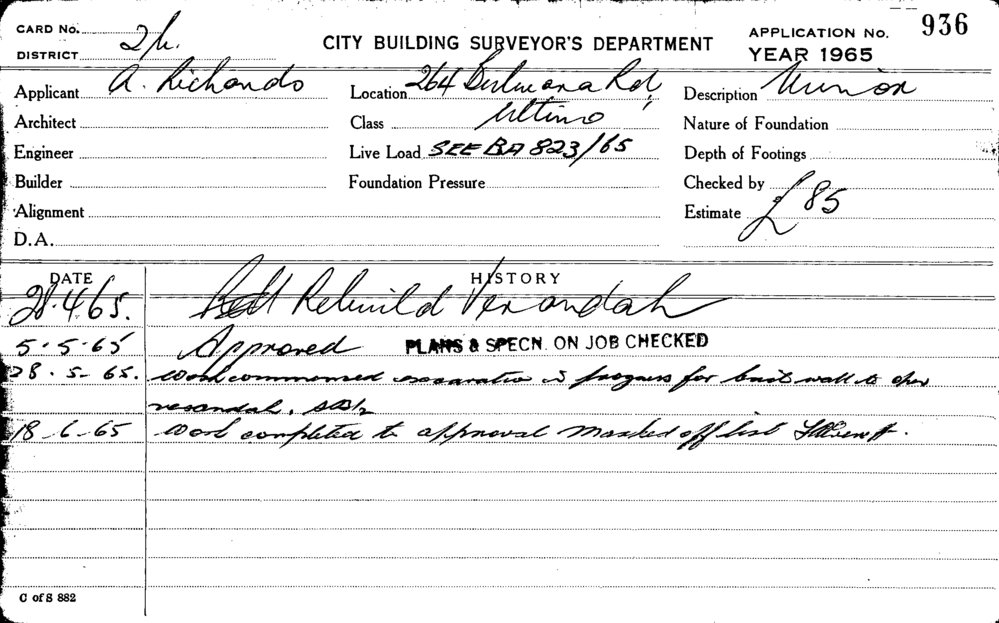 CARD No.
DISTRICT 2/6.
CITY BUILDING SURVEYOR'S DEPARTMENT
APPLICATION No. 936
YEAR 1965
Applicant A. Richards
Location 264 Bulwara Rd,
Description Minor
Architect
Class Ultimo
Nature of Foundation
Engineer
Live Load SEE BA 823/65
Depth of Footings
Builder
Foundation Pressure
Checked by
Alignment
Estimate £85
D.A.
DATE HISTORY
28.4.65. Rebuild Verandah
5.5.65 Approved PLANS & SPECN. ON JOB CHECKED
28.5.65. Work commenced excavation in progress for brick wall to
verandah.
18-6-65 Work completed to approval marked off list
C of S 882